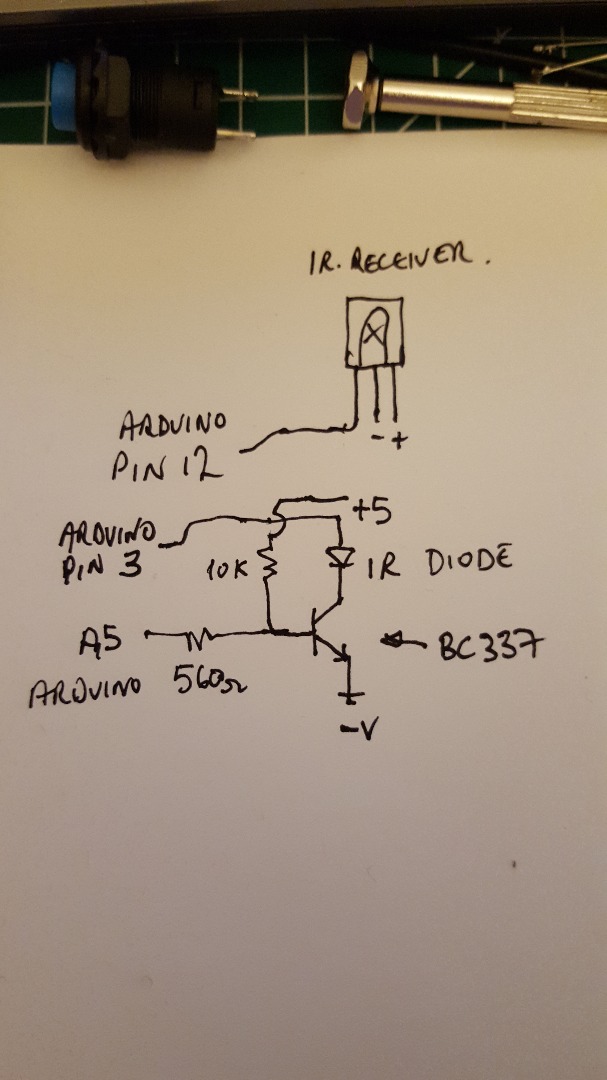 IR. RECEIVER.
ARDUINO
PIN 12
- +
+5
ARDUINO
PIN 3
10K
IR DIODE
A5
ARDUINO
560Ω
BC337
-V